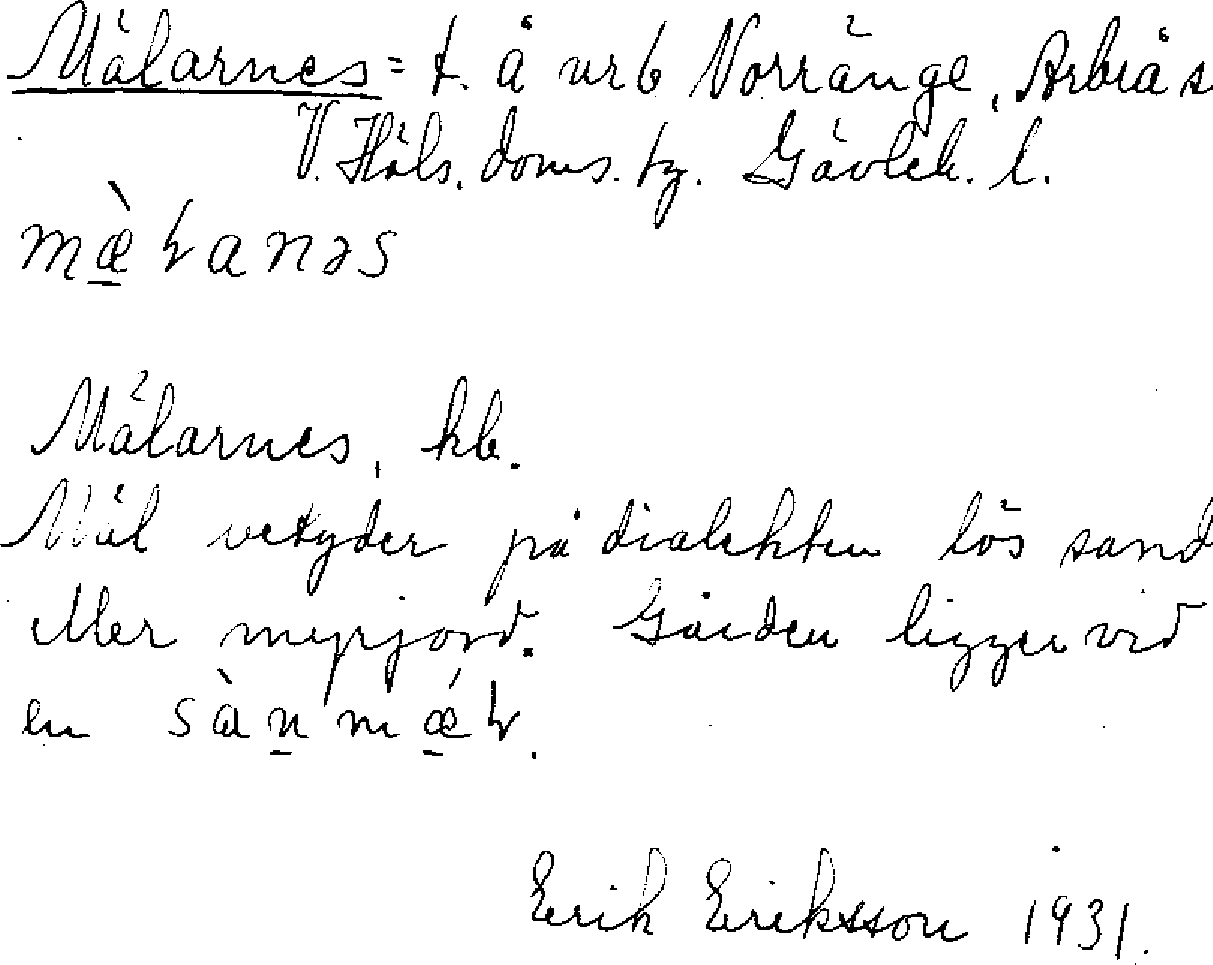 Mälarnes = t. å nr 6 Norränge, Arbrå s
V. Häls. doms. tg. Gävleb. l.
mæ̀ɽanəs
Mälarnes, kb.
Mäl vetyder på dialekten lös sand
eller myrjord. Gården ligger vid
en sànmǽɽ.
Erik Eriksson 1931.